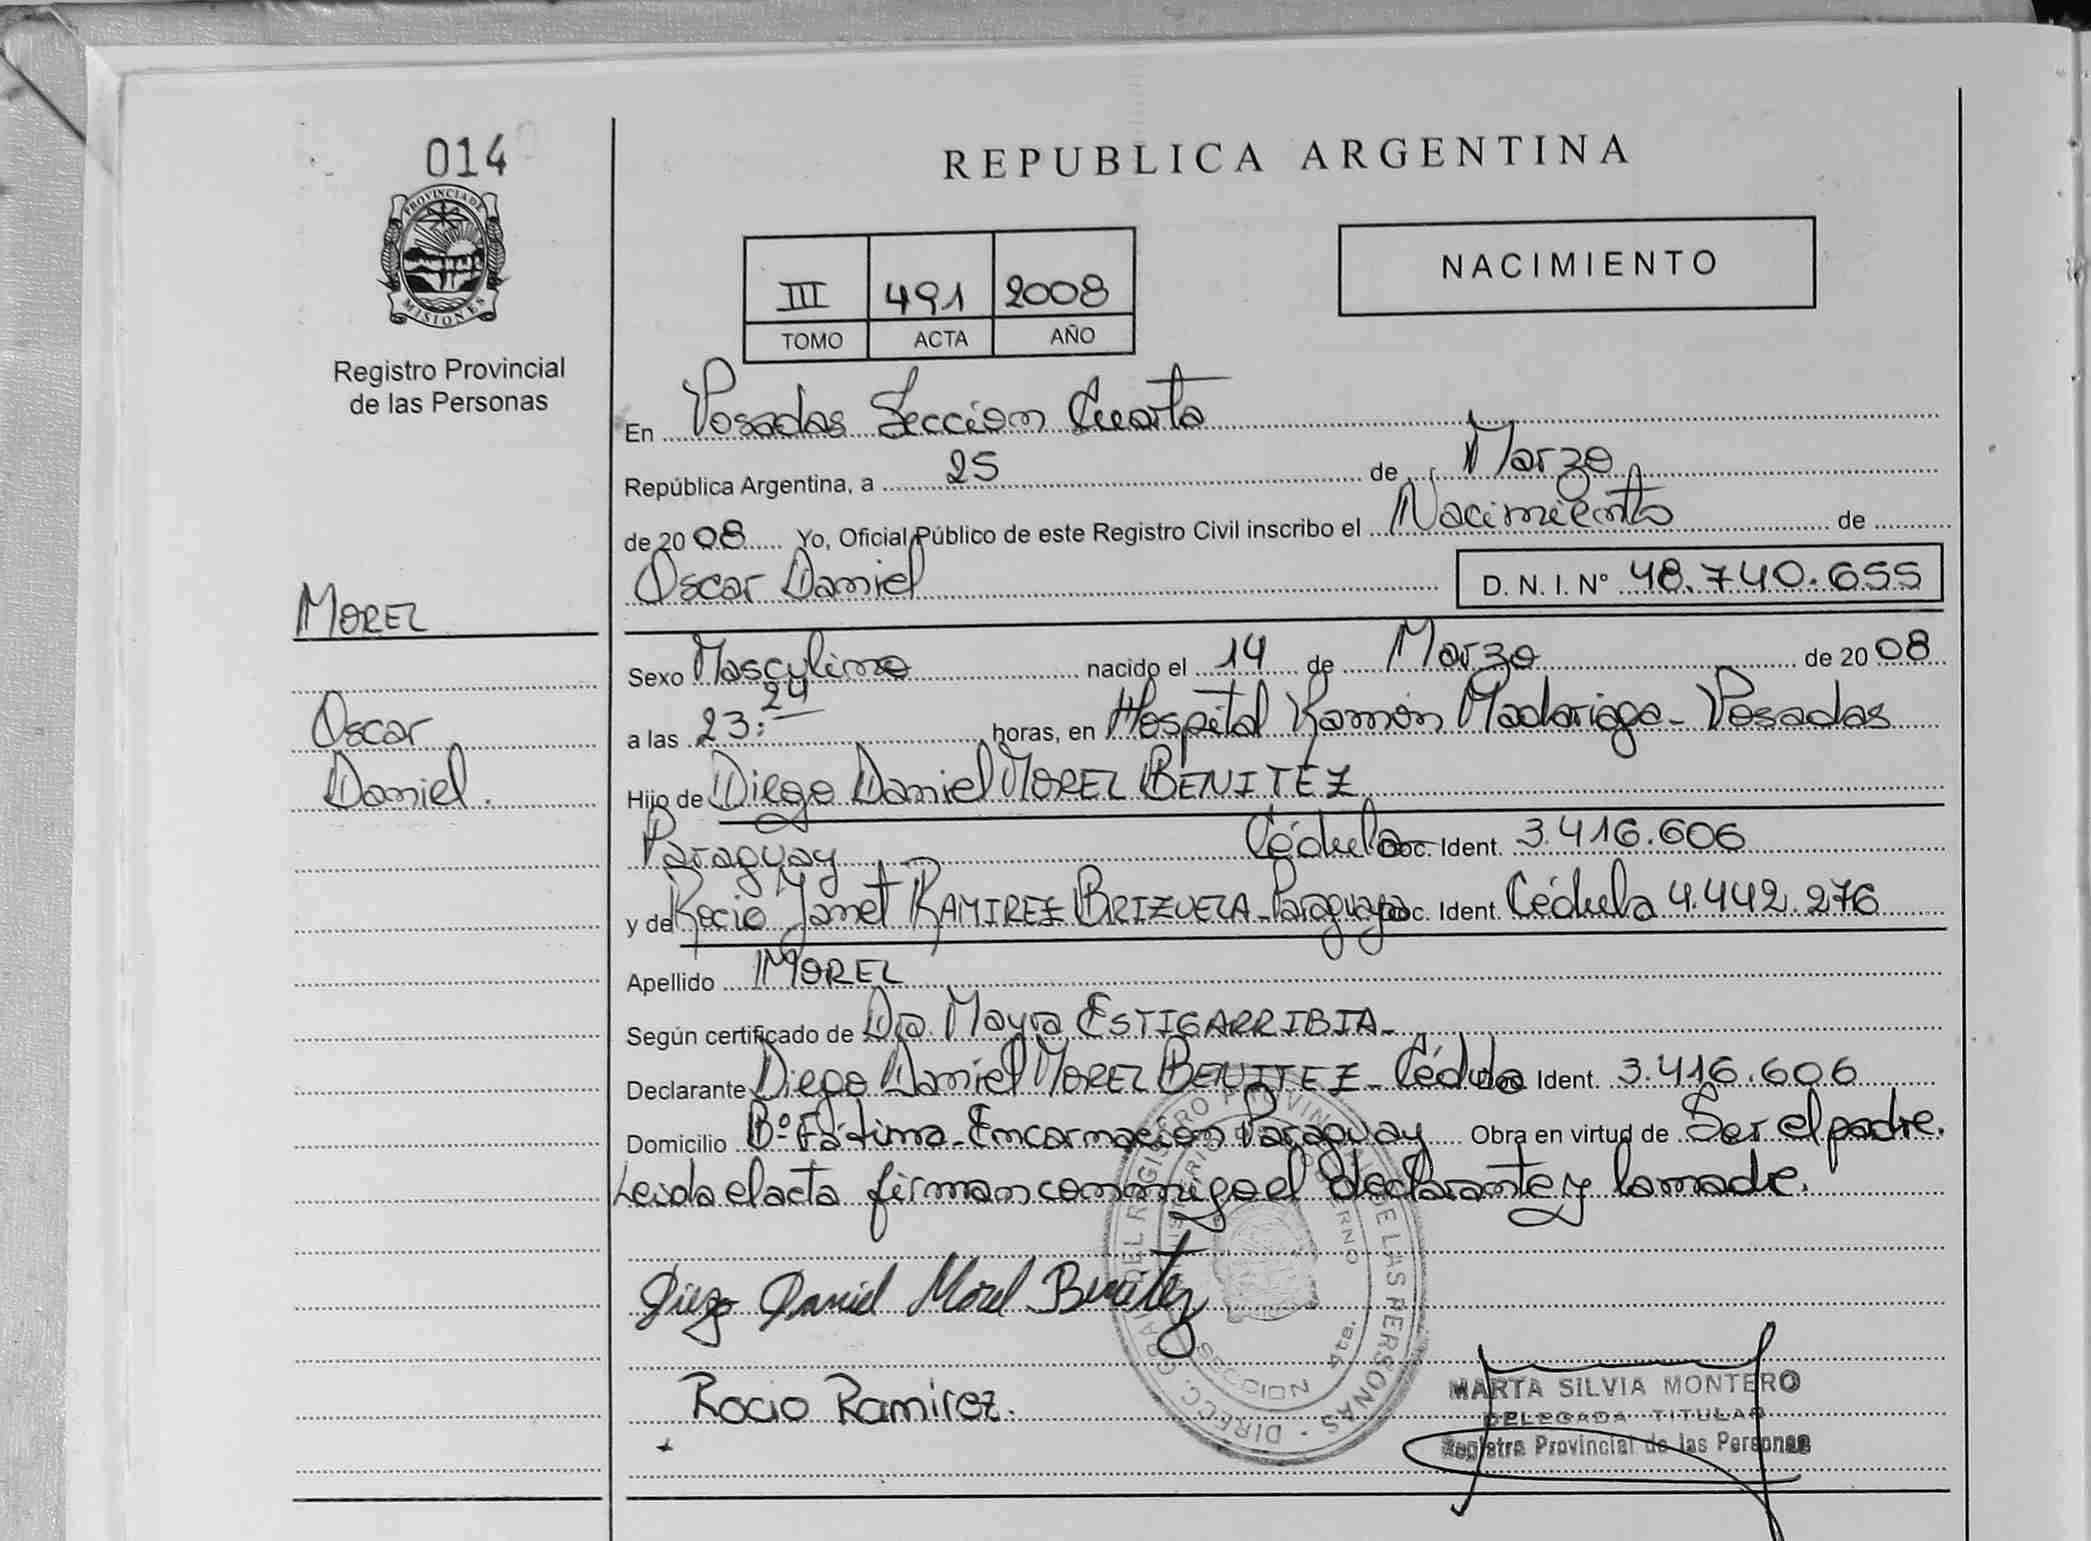 014
PROVINCIA DE
MISIONES
Registro Provincial
de las Personas
MOREL
Oscar
Daniel.
REPUBLICA ARGENTINA
III 491 2008
TOMO ACTA AÑO
NACIMIENTO
En Posadas Sección Cuarta
República Argentina, a 25 de Marzo
de 2008 Yo, Oficial Público de este Registro Civil inscribo el Nacimiento de
Oscar Daniel D. N. I. N° 48.740.655
Sexo Masculino nacido el 14 de Marzo de 2008
a las 23:24 horas, en Hospital Ramón Madariaga - Posadas
Hijo de Diego Daniel MOREL BENITEZ
Paraguay Cédula Doc. Ident. 3.416.606
y de Rocio Janet RAMIREZ BRIZUELA - Paraguaya Doc. Ident. Cédula 4.442.276
Apellido MOREL
Según certificado de Dra. Mayra ESTIGARRIBIA-
Declarante Diego Daniel MOREL BENITEZ - Cédula Doc. Ident. 3.416.606
Domicilio B° Fátima - Encarnación Paraguay Obra en virtud de Ser el padre.
Leida el acta firman conmigo el declarante y la madre.
Diego Daniel Morel Benitez
Rocio Ramirez.
DIRECC. GRAL. DEL REGISTRO PROVINCIAL DE LAS PERSONAS
SECCION 4ta.
MARTA SILVIA MONTERO
DELEGADA TITULAR
Registro Provincial de las Personas